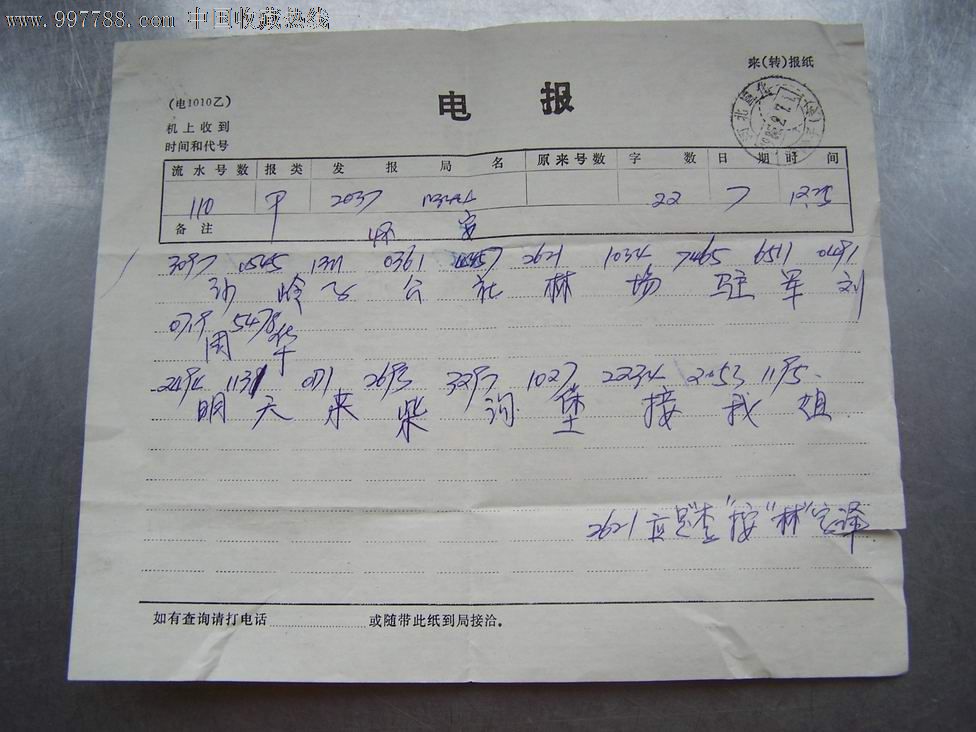 www.997788.com 中国收藏热线
来(转)报纸
(电1010乙)
电 报
机上收到
时间和代号
流水号数 报类 发报局名 原来号数 字数 日期 时间
110 2037 22 7 1225
备注 怀安
3097 0545 0361 2621 1034 7465 6511 0491
沙岭子公社林场驻军刘
0719 5478
国华
2494 1131 0171 2693 3297 1027 2234 2053 1195
明天来柴沟堡接我 姐
2621应是“查”按“林”字译
如有查询请打电话 或随带此纸到局接洽。